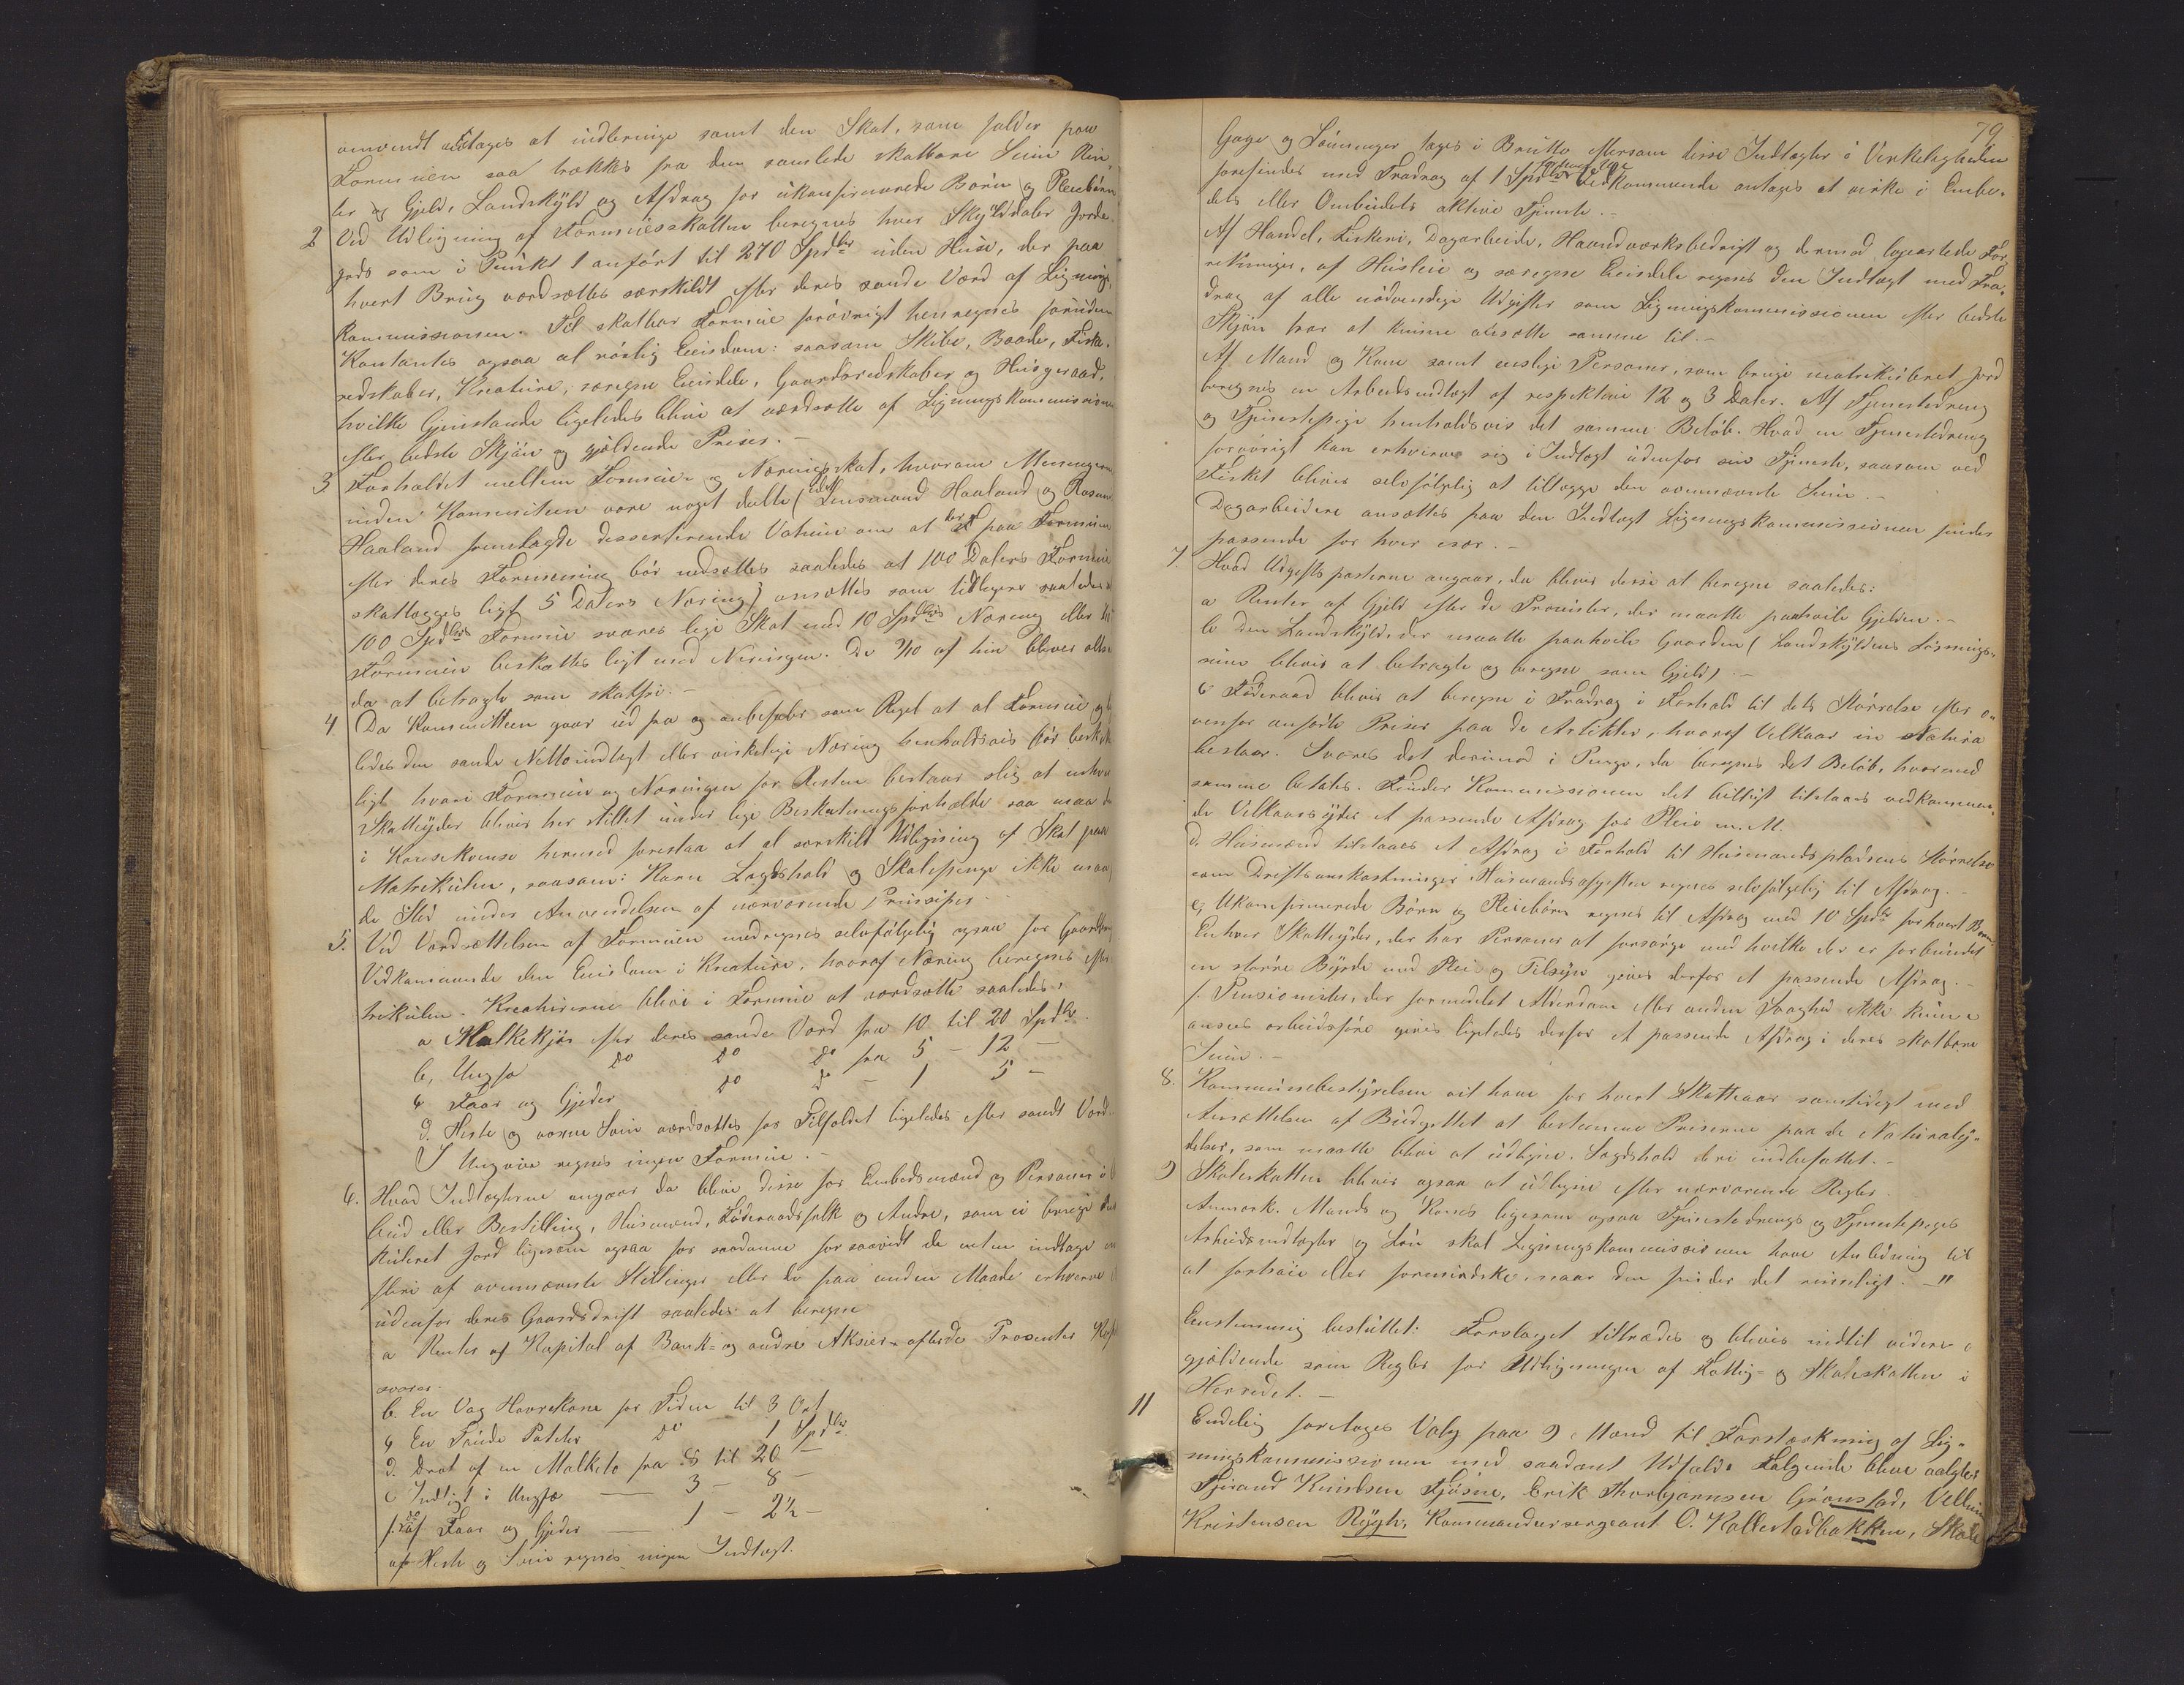 anvendt antages at udbringe samt den Skat, som falder paa
Formuen saa trækkes fra den samlede skatbare Sum Ren-
ter af Gjeld, Landskyld og Afdrag for ukonfirmerede Børn og Pleiebørn
2 Ved Udligning af Formuesskatten beregnes hver Skylddaler Jorde-
gods som i Punkt 1 anført til 270 Spdlr uden Huse, der paa
hvert Brug værdsættes særskildt efter deres sande Værd af Lignings-
kommissionen. Til skatbar Formue forøvrigt henregnes foruden
Kontanter ogsaa al rørlig Eiendom: saasom Skibe, Baade, Fiske-
redskaber, Kreature, særegne Eiendele, Gaardsredskaber og Husgeraad,
hvilke Gjenstande ligeledes blive at værdsætte af Ligningskommissionen
efter bedste Skjøn og gjældende Priser.-
3 Forholdet mellem Formues- og Næringsskat, hvorom Meningerne
inden Komiteen vare noget delte (idet Lensmand Haaland og Rasmus
Haaland fremlagde dessenterende Votum om at der af paa Formuen
efter deres Formening bør nedsættes saaledes at 100 Dalers Formue
skatlægges ligt 5 Dalers Næring) ansættes som tidligere saaledes at
100 Spdlrs Formue svares lige Skat med 10 Spdlrs Næring eller 1/10
Formuen beskattes ligt med Næringen. De 9/10 af hin bliver altsaa
da at betragte som skatfri.-
4 Da Komitteen gaar ud fra og anbefaler som Regel at al Formue og lige-
ledes den sande Nettoindtægt eller virkelige Næring henholdsvis bør beskattes
ligt hvori Formuen og Næringen for Resten bestaar slig at enhver
Skatteyder bliver her stillet under lige Beskatningsforholde saa maa den
i Konsekvense hermed foreslaa at al særskilt Udligning af Skat paa
Matrikulen, saasom: Korn Lægdshold og Skolepenge ikke maa fin-
de Sted under Anvendelsen af nærværende Prinsiper.
5. Ved Værdsættelsen af Formuen medregnes selvfølgelig ogsaa for Gaardbrug
Vedkommende den Eiendom i Kreature, hvoraf Næring beregnes efter
trikulen. Kreaturerne blive i Formue at værdsætte saaledes:
a Malkekjør efter deres sande Værd fra 10 til 20 Spdlr.
b, Ungfæ do do do fra 5 - 12 -
c Faar og Gjeder do do - 1 5 -
d. Heste og voxne Svin værdsættes for Tilfældet ligeledes efter sandt Værd.
I Ungsvin regnes ingen Formue.-
6. Hvad Indtægterne angaar da blive disse for Embedsmænd og Personer i Om-
bud eller Bestilling, Husmænd, Føderaadsfolk og Andre, som ei bruge matri-
kuleret Jord ligesom ogsaa for saadanne for saavidt de enten indtage en
flere af ovennævnte Stillinger eller de paa anden Maade erhverve
udenfor deres Gaardsdrift saaledes at beregne
a Renter af Kapital af Bank- og andre Aksier- efter de Procenter
svarer.
b. En Vog Havrekorn for Tiden til 3 Ort
c En Tønde Poteter do 1 Spdlr.
d. Drot af en Malkeko fra 8 til 20 -
e Indtægt i Ungfæ —— 3 - 8 -
f. do af Faar og Gjeder —— 1 - 2½ -
af Heste og Svin regnes ingen Indtægt.
79
Gage og Lønninger tages i Brutto eftersom disse Indtægter i Virkeligheden
forefindes med Fradrag af 1 Spdlr Vedkommende antages at virke i Embe-
dets eller Ombudets aktive Tjeneste.-
Af Handel, Fiskeri, Dagarbeide, Haandværksbedrift og dermed ligeartede For-
retninger, af Husleie og særegne Eiendele regnes den Indtægt med Fra-
drag af alle nødvendige Udgifter som Ligningskommissionen efter bedste
Skjøn tror at kunne ansætte samme til.-
Af Mand og Kone samt enslige Personer, som bruge matrikuleret Jord
beregnes en Arbeidsindtægt af respektive 12 og 3 Daler. Af Tjenestedreng
og Tjenestepige henholdsvis det samme Beløb. Hvad en Tjenestedreng
forøvrigt kan erhverve sig i Indtægt udenfor sin Tjeneste, saasom ved
Fisket bliver selvfølgelig at tillægge den ovennævnte Sum.-
Dagarbeidere ansættes paa den Indtægt Ligningskommissionen finder
passende for hver især.-
7. Hvad Udgiftsposterne angaar, da bliver disse at beregne saaledes:
a Renter af Gjeld efter de Procenter, der maatte paahvile Gjelden.-
b den Landskyld, der maatte paahvile Gaarden (Landskyldens Løsnings-
sum bliver at betragte og beregne som Gjeld).-
c Føderaad bliver at beregne i Fradrag i Forhold til dets Størrelse efter o-
venfor anførte Priser paa de Artikler, hvoraf Velkaar in Natura
bestaar. Svares det derimod i Penge, da beregnes det Beløb, hvormed
samme betales. Finder Kommissionen det billigt tilstaaes vedkommen-
de Velkaarsyder et passende Afdrag for Pleie m.M.
d. Husmænd tilstaaes et Afdrag i Forhold til Husmandspladsens Størrelse
som Driftsomkostninger. Husmandsafgiften regnes selvfølgelig til Afdrag.-
e, Ukonfirmerede Børn og Pleiebørn regnes til Afdrag med 10 Spdlr for hvert Barn.
Enhver Skatteyder, der har Personer at forsørge med hvilke der er forbundet
en større Byrde med Pleie og Tilsyn gives derfor et passende Afdrag.-
f. Pensionister, der formedelst Alderdom eller anden Svaghed ikke kunne
ansees arbeidsføre gives ligeledes derfor et passende Afdrag i deres skatbare
Sum.-
8. Kommunebestyrelsen vil have for hvert Skatteaar samtidigt med
Ansættelsen af Budgettet at bestemme Priserne paa de Naturaly-
delser, som maatte blive at udligne, Lægdshold deri indbefattet.-
9 Skoleskatten bliver ogsaa at udligne efter nærværende Regler.
Anmærk. Mands og Kones ligesom ogsaa Tjenestedrengs og Tjenestepiges
Arbeidsindtægter og Løn skal Ligningskommissionen have Anledning til
at forhøie eller formindske, naar den finder det rimeligt.-"
Eenstemmig besluttet: Forslaget tiltrædes og bliver indtil videre
gjældende som Regler for Udligningen af Fattig- og Skoleskatten i
Herredet.-
11 Endelig foretages Valg paa 9 Mænd til Forstærkning af Lig-
ningskommissionen med saadant Udfald: Følgende bleve valgte:
Sjovand Knudsen Tjøsne, Erik Thorbjørnsen Grønstad, Vellum
Kristensen Rygh, Kommandersergeant O. Kallestadbakken, Skole